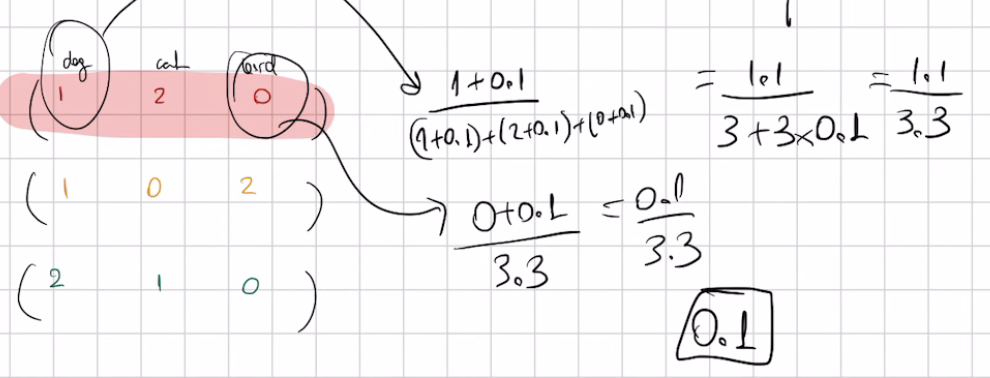 dog cat bird
( 1 2 0 )
( 1 0 2 )
( 2 1 0 )
1+0.1 / (1+0.1)+(2+0.1)+(0+0.1) = 1.1 / 3+3×0.1 = 1.1 / 3.3
0+0.1 / 3.3 = 0.1 / 3.3
0.1